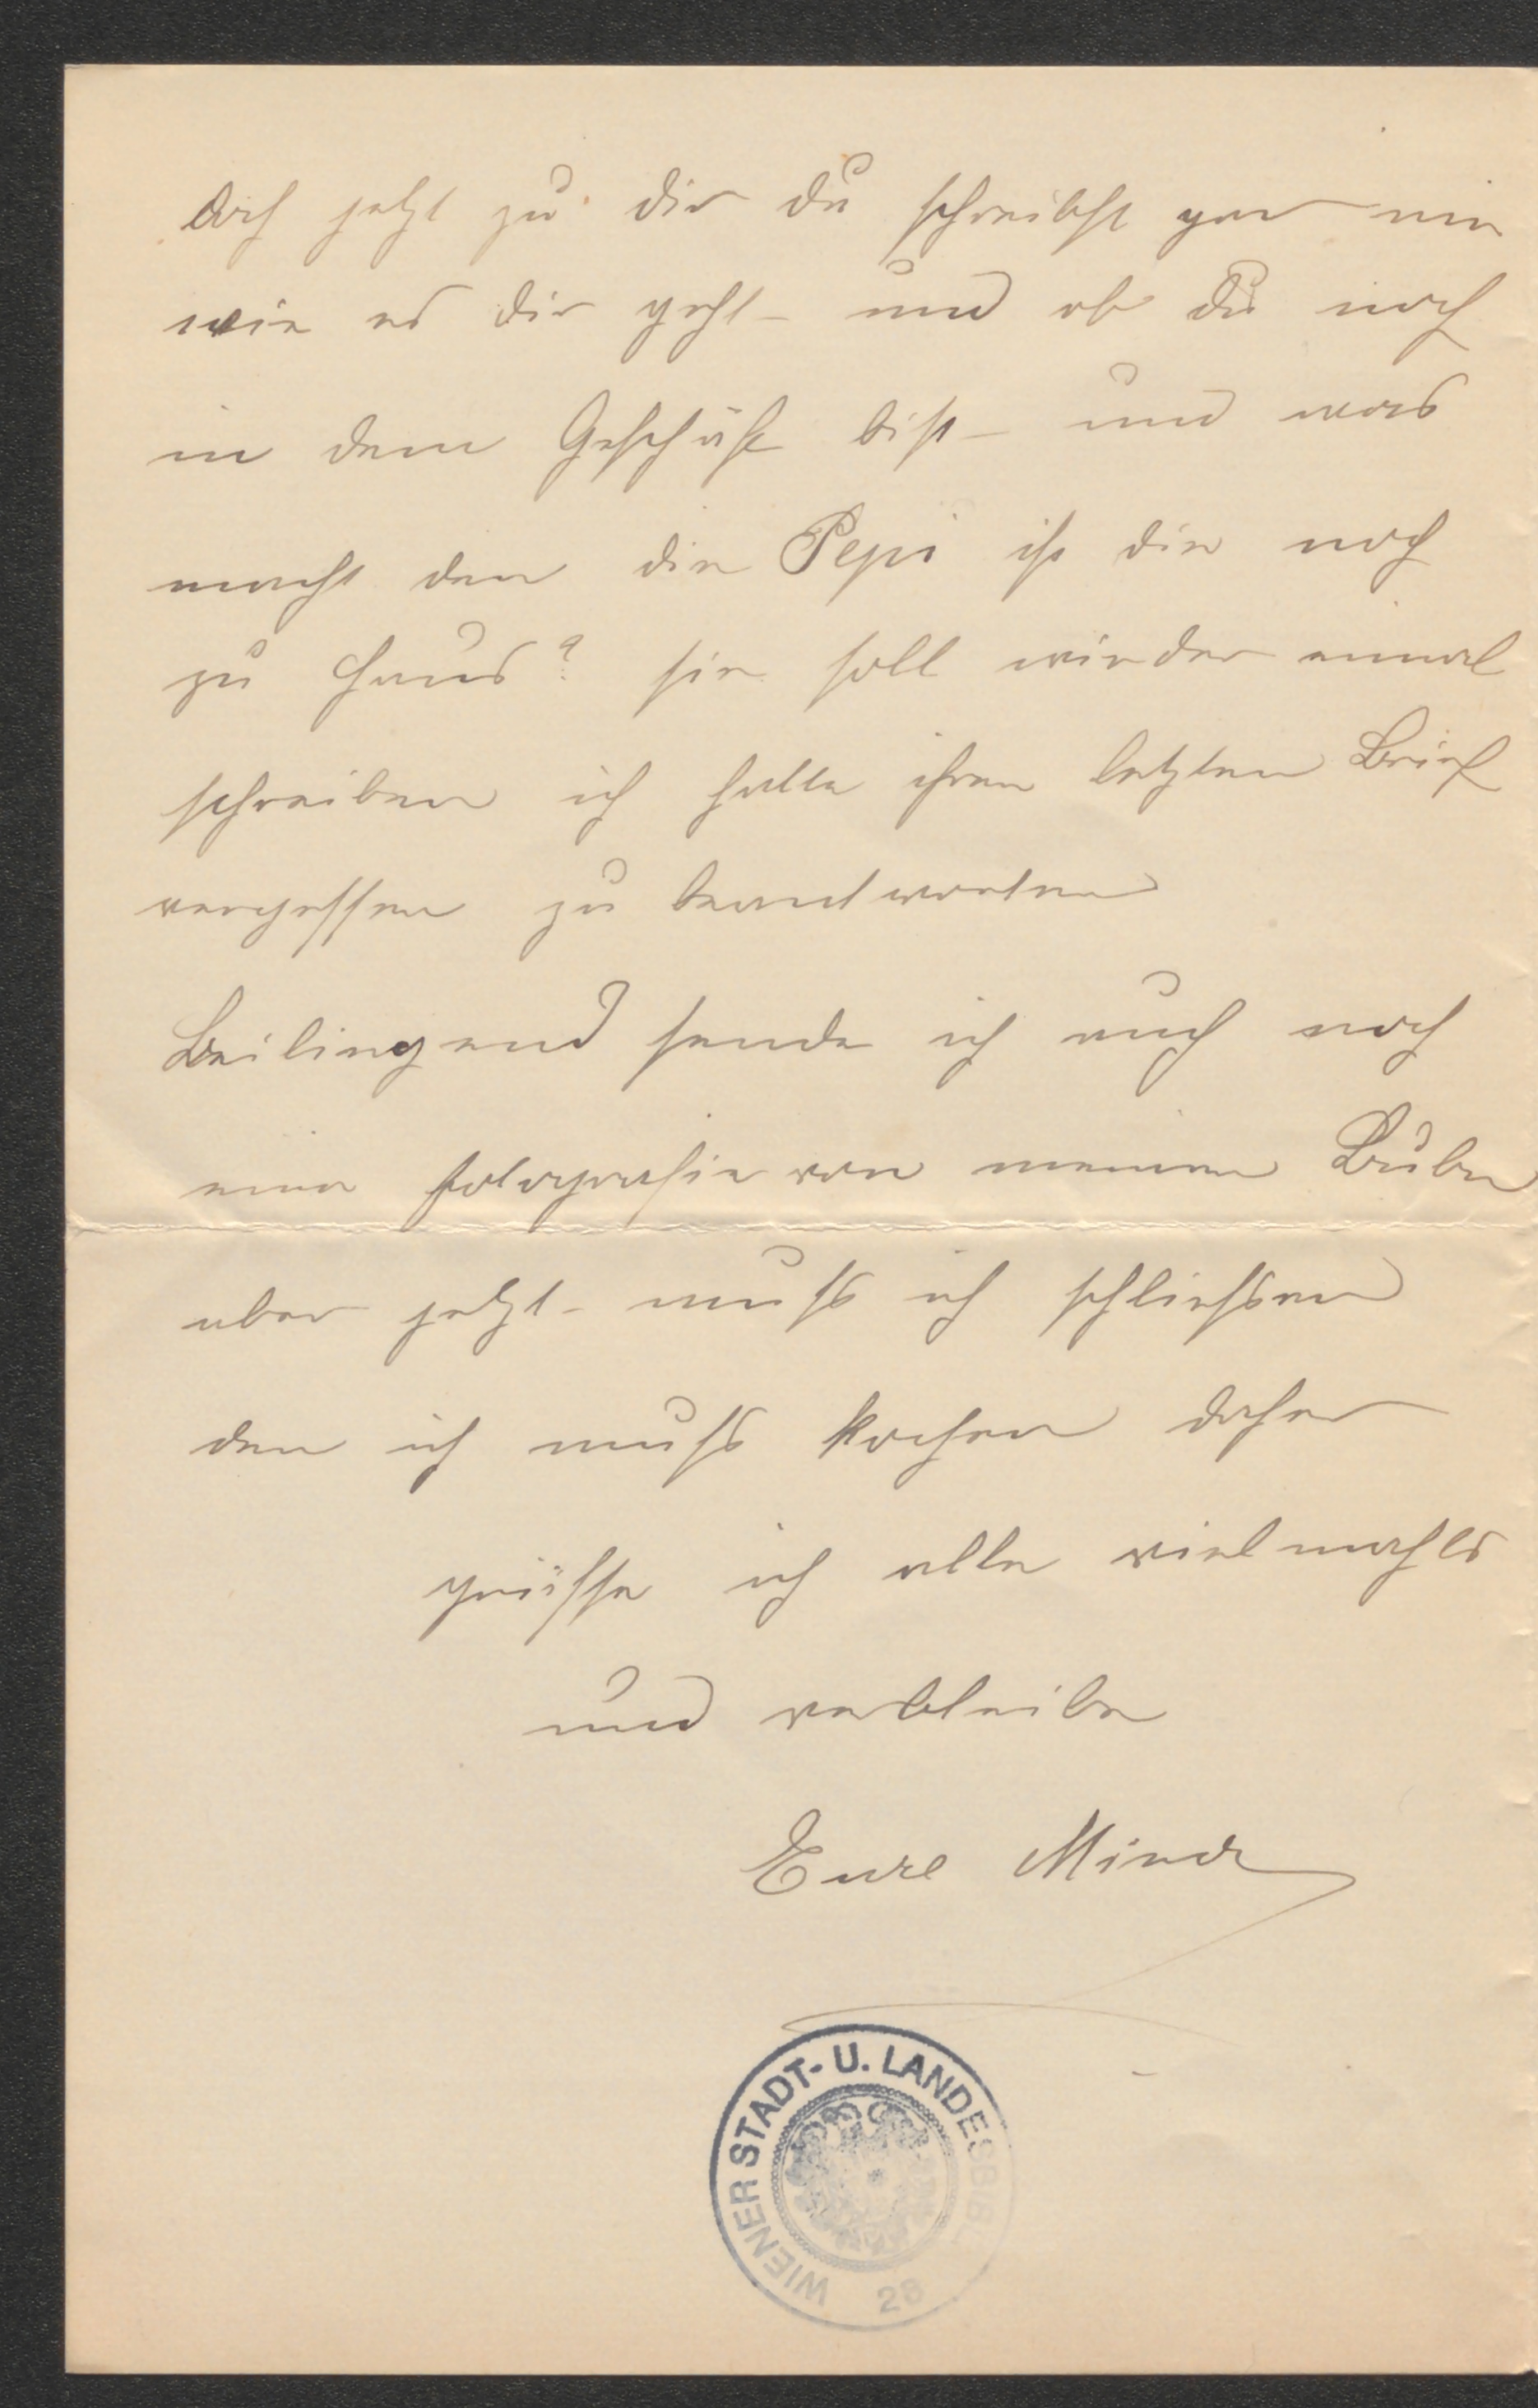 doch jetzt zu dir du schreibst gar nie
wie es dir geht und ob du noch
in dem Geschäft bist und was
macht den die Pepi ist die noch
zu Haus? sie soll wieder einmal
schreiben ich hatte ihren letzten Brief
vergessen zu beantworten
Beiliegend sende ich euch noch
eine fotografie von meinem Buben
aber jetzt muss ich schliessen
den ich muss kochen daher
grüsse ich alle vielmahls
und verbleibe
Eure Mina
WIENER STADT- U. LANDESBIBL
28